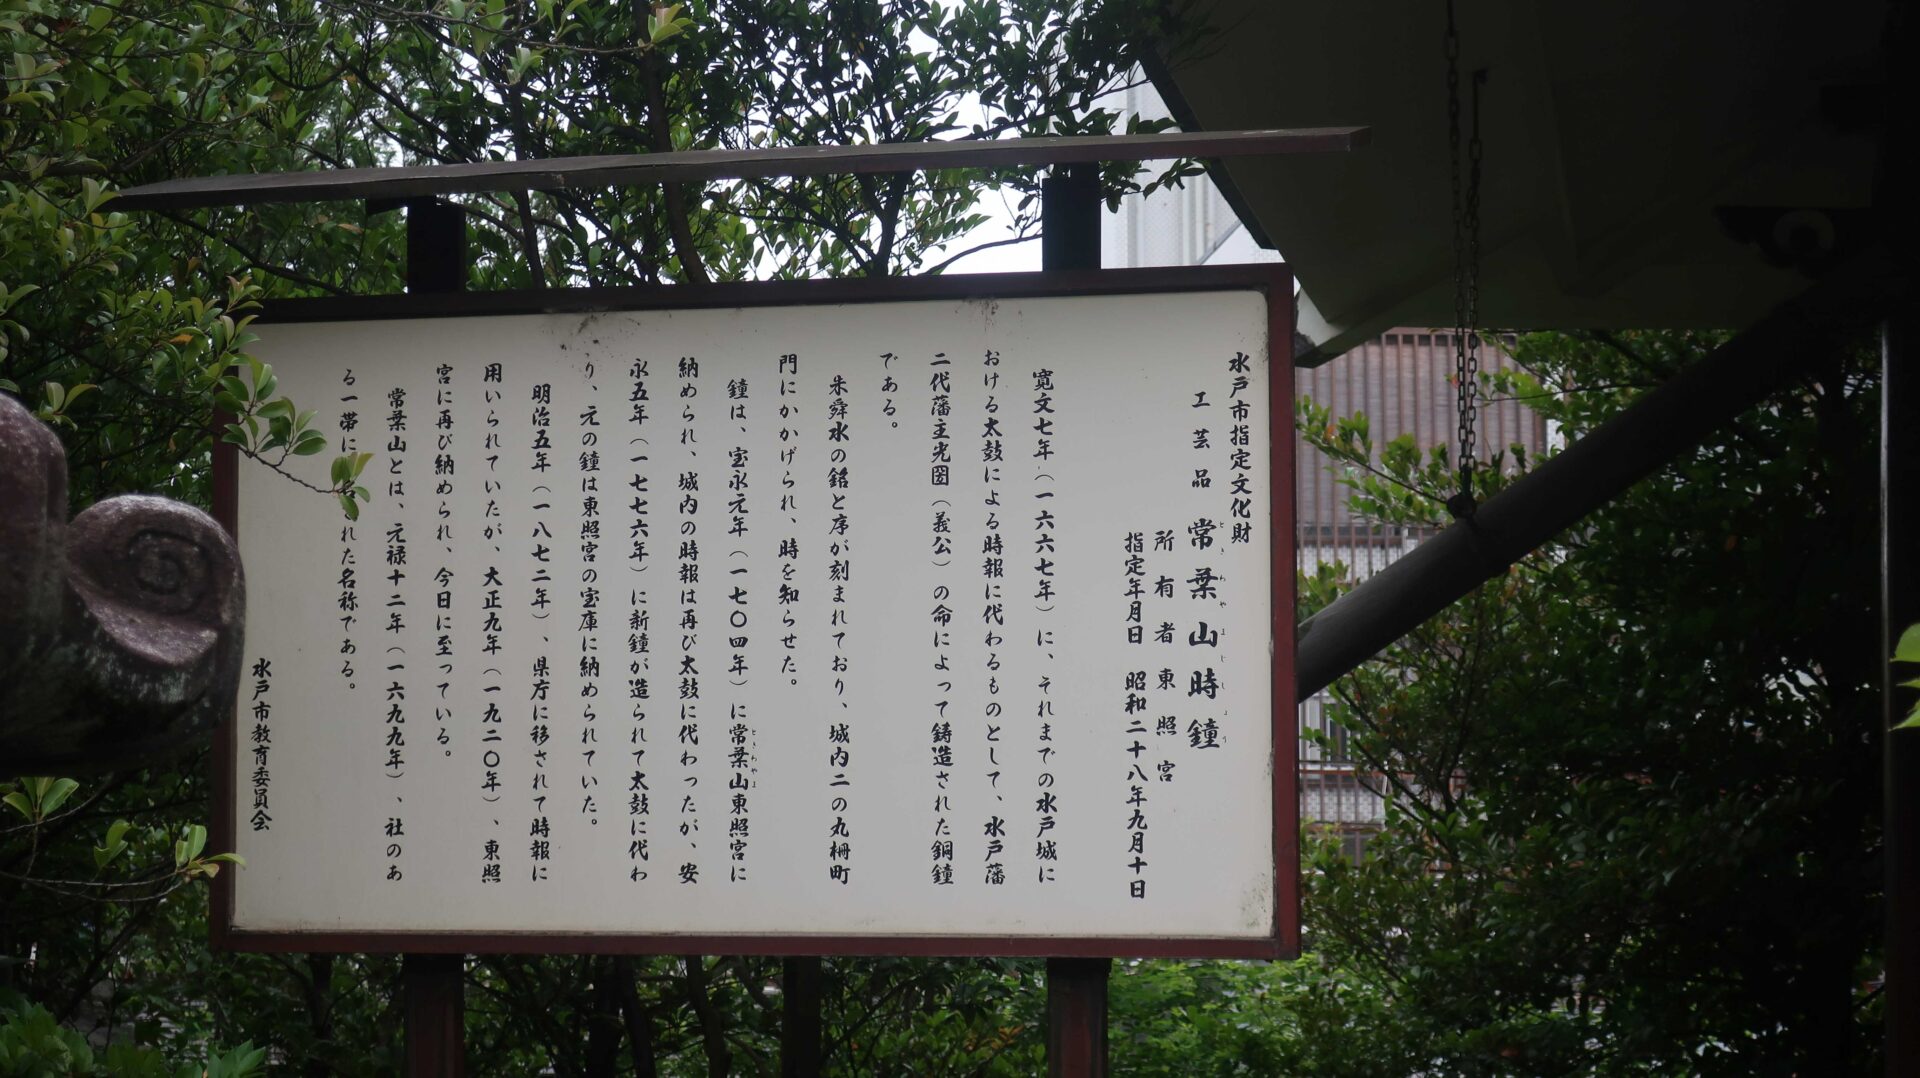 水戸市指定文化財
工芸品 常葉山時鐘
ときわやまじしょう
所有者 東照宮
指定年月日 昭和二十八年九月十日
寛文七年（一六六七年）に、それまでの水戸城に
おける太鼓による時報に代わるものとして、水戸藩
二代藩主光圀（義公）の命によって鋳造された銅鐘
である。
朱舜水の銘と序が刻まれており、城内二の丸柵町
門にかかげられ、時を知らせた。
鐘は、宝永元年（一七〇四年）に常葉山東照宮に
ときわやま
納められ、城内の時報は再び太鼓に代わったが、安
永五年（一七七六年）に新鐘が造られて太鼓に代わ
り、元の鐘は東照宮の宝庫に納められていた。
明治五年（一八七二年）、県庁に移されて時報に
用いられていたが、大正九年（一九二〇年）、東照
宮に再び納められ、今日に至っている。
常葉山とは、元禄十二年（一六九九年）、社のあ
る一帯に名 れた名称である。
水戸市教育委員会